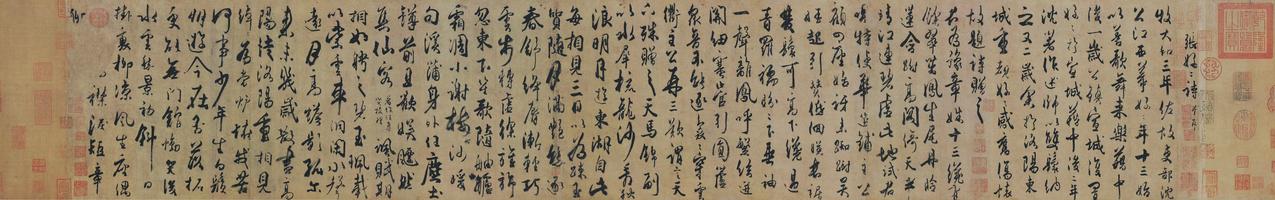 張好好詩并序
牧大和三年佐故吏部沈
公江西幕好好年十三始
以善歌舞來樂籍中
後一歲公鎮宣城復置
好好於宣城籍中後二年
沈著作述師以雙鬟納
之又二歲余於洛陽東
城重覩好好感舊傷懷
故題詩贈之
君為豫章姝十三纔有
餘翠茁鳳生尾丹臉
蓮含跗高閣倚天半
晴江連碧虛此地試君
唱特使華筵鋪主公
顧四座始訝來踟躕吳
娃起引贊低回映長裾
雙鬟可高下纔過
青羅襦盼盼下垂袖
一聲離鳳呼繁絃迸
關紐塞管引圓蘆
衆音不能逐裊裊穿雲
衢主公再三歎謂言天
下殊贈之天馬錦副
以水犀梳龍沙看秋
浪明月遊東湖自此
每相見三日以為疎玉
質隨月滿艷態逐
春舒絳脣漸輕巧
雲步轉虛徐旌旆
忽東下笙歌隨舳艫
霜凋小謝樓沙暖
句溪蒲身外任塵土
罇前且歡娛飄然
集仙客諷賦期
相如聘之碧玉佩載
以紫雲車洞閉水聲
遠月高蟾影孤爾
來未幾歲散盡高
陽徒洛陽重相見
婥婥為當壚怪我苦
何事少年生白鬚
朋遊今在否落拓
更能無門館慟哭後
水雲秋景初斜日
掛衰柳涼風生座隅
襟淚短章